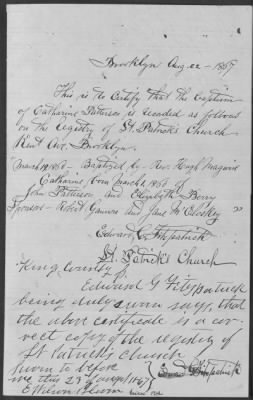 Brooklyn Aug. 22 - 1867
This is to Certify that the Baptism
of Catharine Patterson is recorded as follows
on the registry of St. Patrick's Church
Kent Ave. Brooklyn.
March 19 1860 - Baptized by - Rev. Hugh Maguire
Catharine born March 1, 1860 - of
John Patterson and Elizabeth Berry
Sponsors - Robert and Jane McCloskey
Edward G. Fitzpatrick
St. Patrick's Church
Kings County
Edward G Fitzpatrick
being duly sworn says, that
the above certificate is a cor-
rect copy of the registry of
St Patricks Church
Sworn to before
me this 23d August 1867
Fitzpatrick
E Wilson